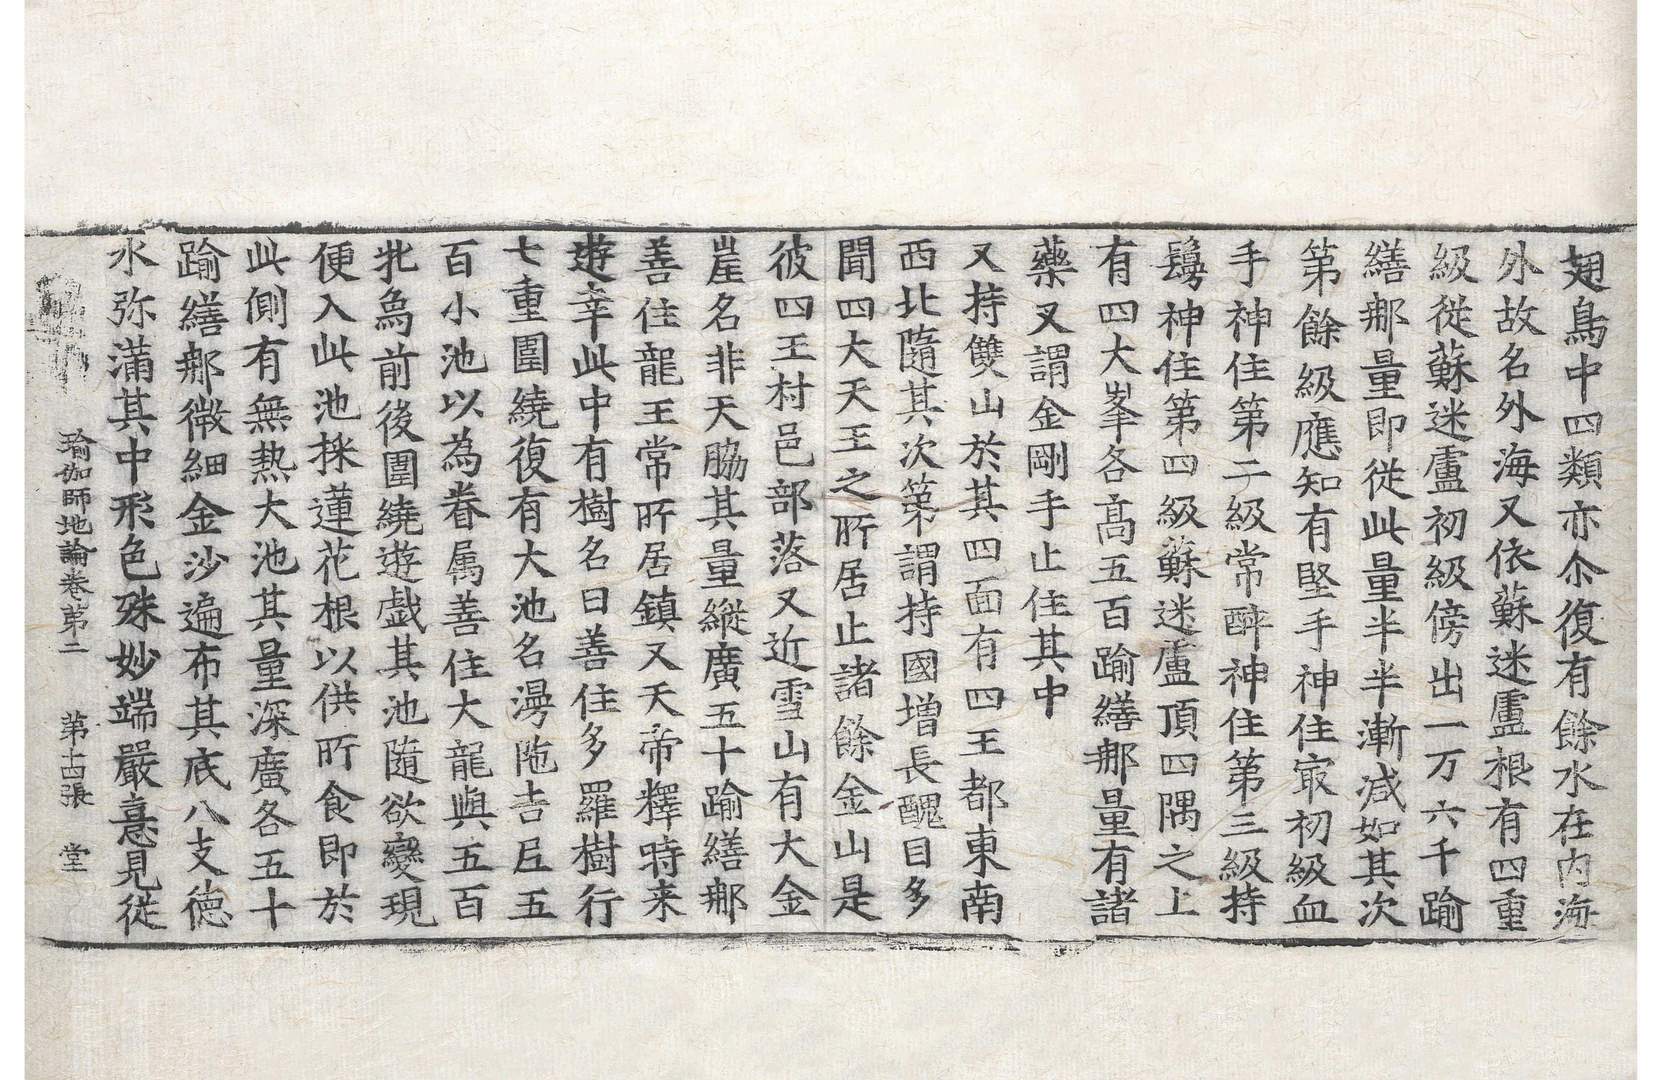 翅鳥中四類亦尒復有餘水在內海
外故名外海又依蘇迷盧根有四重
級從蘇迷盧初級傍出一万六千踰
繕那量即從此量半半漸減如其次
第餘級應知有堅手神住㝡初級血
手神住第二級常醉神住第三級持
鬘神住第四級蘇迷盧頂四隅之上
有四大峯各髙五百踰繕那量有諸
藥叉謂金剛手止住其中
又持雙山於其四面有四王都東南
西北隨其次第謂持國増長醜目多
聞四大天王之所居止諸餘金山是
彼四王村邑部落又近雪山有大金
崖名非天脇其量縱廣五十踰繕那
善住龍王常所居鎮又天帝釋時来
遊幸此中有樹名曰善住多羅樹行
七重圍繞復有大池名漫陁吉𡰱五
百小池以為眷属善住大龍與五百
牝象前後圍繞遊戱其池隨欲變現
便入此池採蓮花根以供所食即於
此側有無熱大池其量深廣各五十
踰繕那微細金沙遍布其底八支德
水弥滿其中形色殊妙端嚴憙見從
瑜伽師地論卷第二 第十四張 堂